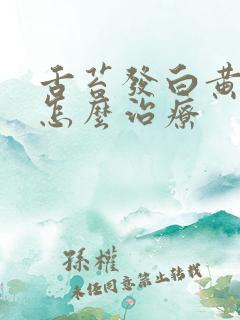 舌苔發白黃
怎麼治療
孫權
未经同意禁止转载